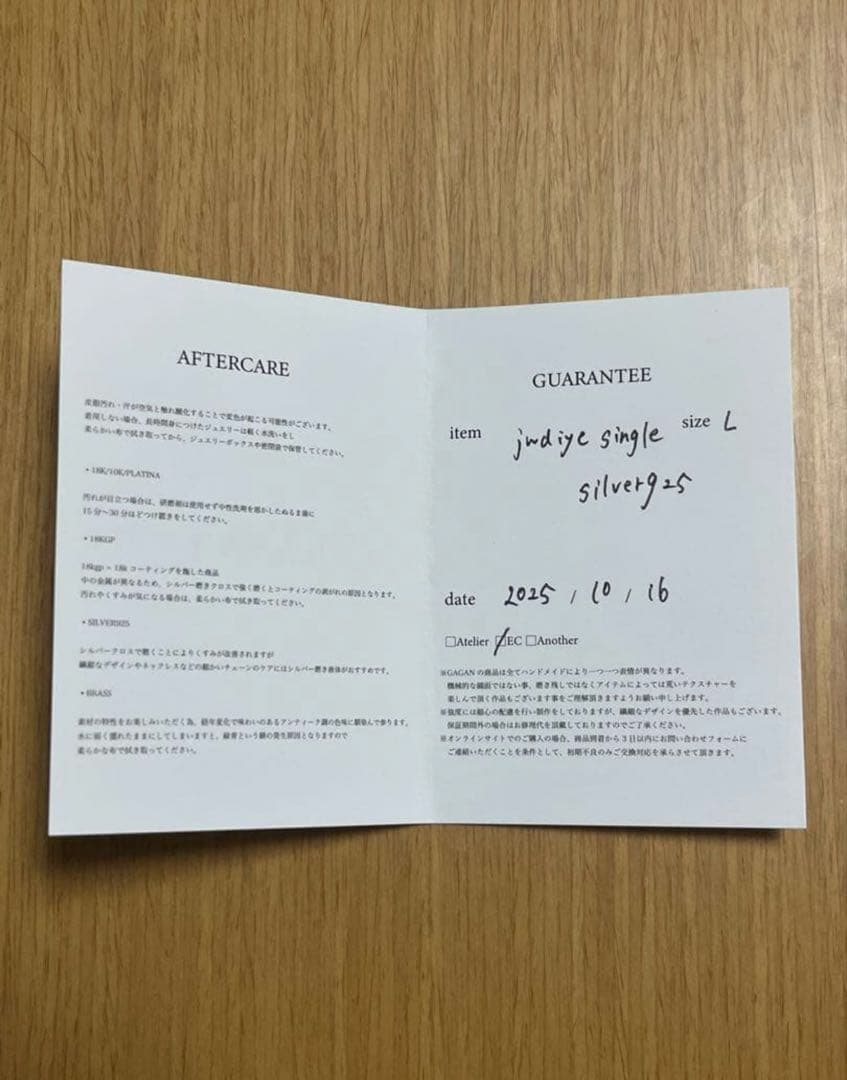 AFTERCARE
皮脂汚れ・汗が空気と触れ酸化することで変色が起こる可能性がございます。
着用しない場合、長時間身につけたジュエリーは軽く水洗いをし
柔らかい布で拭き取ってから、ジュエリーボックスや密閉袋で保管してください。
・18K/10K/PLATINA
汚れが目立つ場合は、研磨剤は使用せず中性洗剤を溶かしたぬるま湯に
15分〜30分ほどつけ置きをしてください。
・18KGP
18kgp = 18k コーティングを施した商品
中の金属が異なるため、シルバー磨きクロスで強く磨くとコーティングの剥がれの原因となります。
汚れやくすみが気になる場合は、柔らかい布で拭き取ってください。
・SILVER925
シルバークロスで磨くことによりくすみが改善されますが
繊細なデザインやネックレスなどの細かいチェーンのケアにはシルバー磨き液体がおすすめです。
・BRASS
素材の特性をお楽しみいただく為、経年変化で味わいのあるアンティーク調の色味に馴染んで参ります。
水に弱く濡れたままにしてしまいますと、緑青という錆の発生原因となりますので
柔らかな布で拭き取ってください。
GUARANTEE
item jwdiye single size L
silver925
date 2025 / 10 / 16
□Atelier ☑EC □Another
※GAGANの商品は全てハンドメイドにより一つ一つ表情が異なります。
機械的な鏡面ではない事、磨き残しではなくアイテムによっては荒いテクスチャーを
楽しんで頂く作品もございます事をご理解頂きますようお願い申し上げます。
※強度には細心の配慮を行い製作をしておりますが、繊細なデザインを優先した作品もございます。
保証期間外の場合はお修理代を頂戴しておりますのでご了承ください。
※オンラインサイトでのご購入の場合、商品到着から3日以内にお問い合わせフォームに
ご連絡いただくことを条件として、初期不良のみご交換対応を承らさせて頂きます。